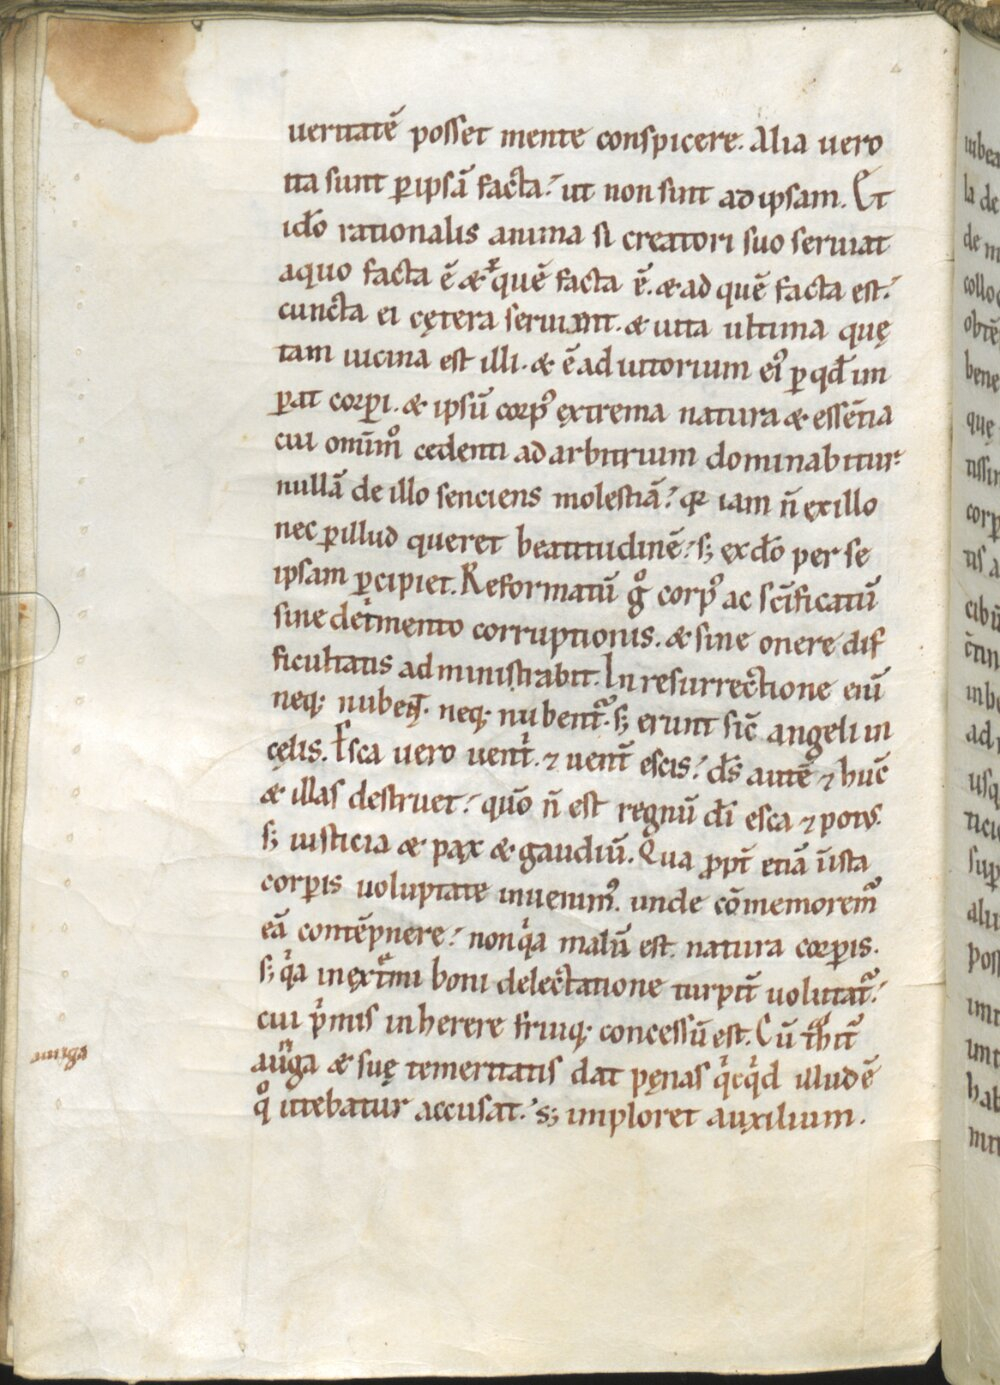 ueritatē posset mente conspicere. Alia uero
ita sunt ꝑ ipsā facta? ut non sint ad ipsam. Et
id̄o rationalis anima si creatori suo seruiat
a quo facta ē & quē facta ē. & ad quē facta est?
cuncta ei cętera seruient. & uita ultima quę
tam uicina est illi. & ē adiutorium eiꝰ ꝑ qd̄ im
ꝑat corꝑi. & ipsū corpꝰ extrema natura & essētia
cui om̄imͦ cedenti ad arbitrium dominabitur?
nullā de illo senciens molestiā? qr iam n̄ ex illo
nec ꝑ illud queret beatitudinē? s; ex d̄o per se
ipsam ꝑcipiet. Reformatū gͦ corpꝰ ac scīficatū
sine detͥmento corruptionis. & sine onere dif
ficultatis administrabit. In resurrectione eni̅
neq; nubent̄. neq; nubentᷓ. s; erunt sic̄ angeli in
cęlis. Esca uero uentͥ. ⁊ uent̄ escis? dꝰs autē ⁊ hūc
& illas destruet? quō n̄ est regnū dī esca ⁊ potꝰ.
s; iusticia & pax & gaudiū. Qua ꝓpt̄ etiā ī ista
corꝑis uoluptate inuenimꝰ. unde cōmemoremᷓ
eā contēpnere? non qͥa malū est natura corꝑis.
s; qͥa in extͤmi boni delectatione turpit̄ uolutatᷓ?
cui pͥmis inherere fruiq; concessū est. Cū tͣhitᷓ
auriga & suę temeritatis dat pęnas qͥcqͥd illud ē
qͦ utebatur accusat? s; imploret auxilium.